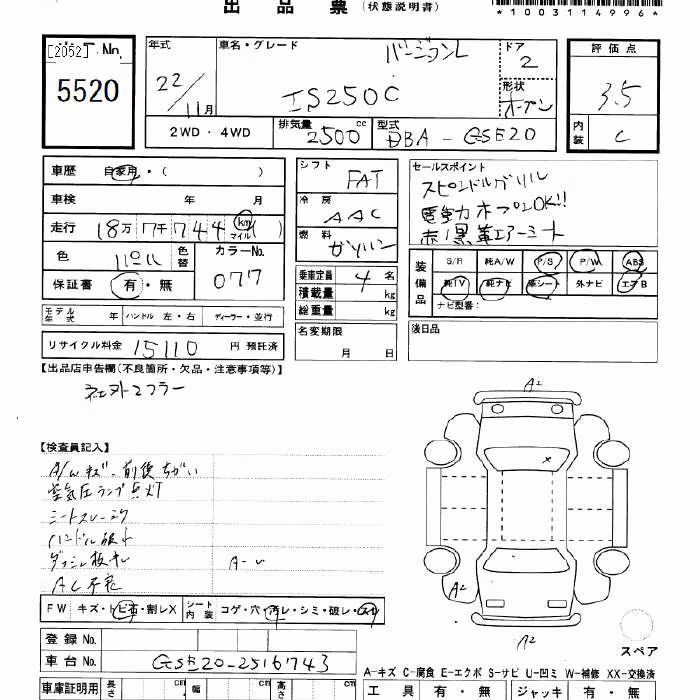 出品票(状態説明書)
*1003114996*
[2052] No.
5520
年式 22/11月
車名・グレード バージョンL IS250C
ドア 2
形状 オープン
評価点 3.5
内装 C
2WD・4WD
排気量 2500 cc
型式 DBA-GSE20
車歴 自家用・( )
車検 年 月
走行 18万7千744 km マイル ( )
色 パール 色替 カラーNo. 077
保証書 有・無
シフト FAT
冷房 AAC
燃料 ガソリン
乗車定員 4 名
積載量 kg
総重量 kg
セールスポイント
スピンドルグリル
電動オープンOK!!
赤/黒革エアーシート
装備品 S/R 純A/W P/S P/W ABS
純TV 純ナビ 革シート 外ナビ エアB
ナビ型番:
モデル年式 年 ハンドル 左・右 ディーラー・並行
名変期限 月 日
後日品
リサイクル料金 15110 円 預託済
【出品店申告欄(不良箇所・欠品・注意事項等)】
社外マフラー
【検査員記入】
A/Wキズ 前後ちがい
空気圧ランプ点灯
シートスレ
ハンドル
ダッシュ板キレ
AC不良
A-U
A2
x
A2
A2
FW キズ・トビ石・割レX シート内装 コゲ・穴・汚レ・シミ・破レ・スレ
登録No.
車台No. GSE20-2516743
スペア
A-キズ C-腐食 E-エクボ S-サビ U-凹ミ W-補修 XX-交換済
車庫証明用 長さ cm 幅 cm 高さ cm
工具 有・無 ジャッキ 有・無